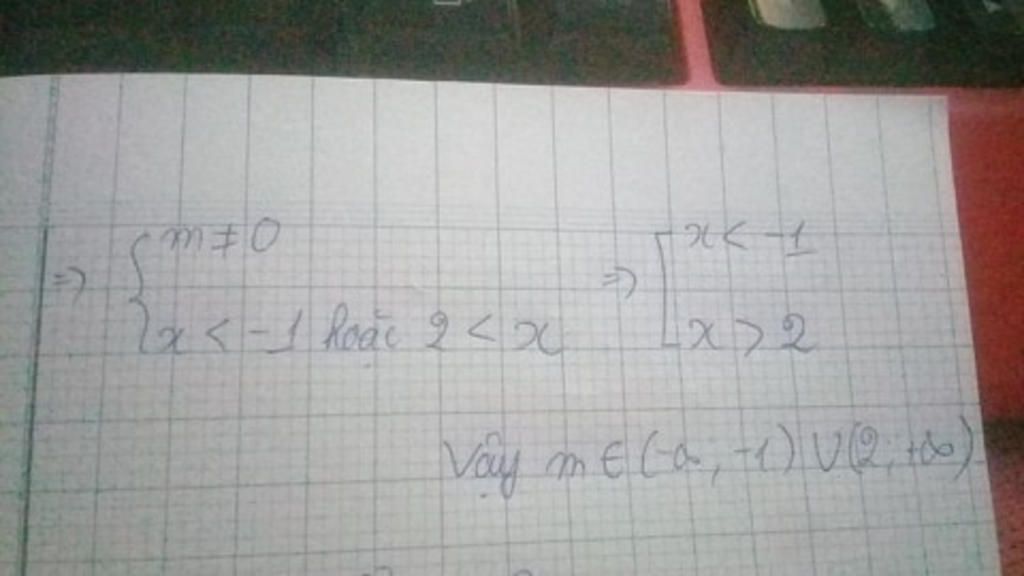 => { m ≠ 0 => [ x < -1
x < -1 hoặc 2 < x x > 2
Vậy m ∈ (-∞, -1) ∪ (2; +∞)